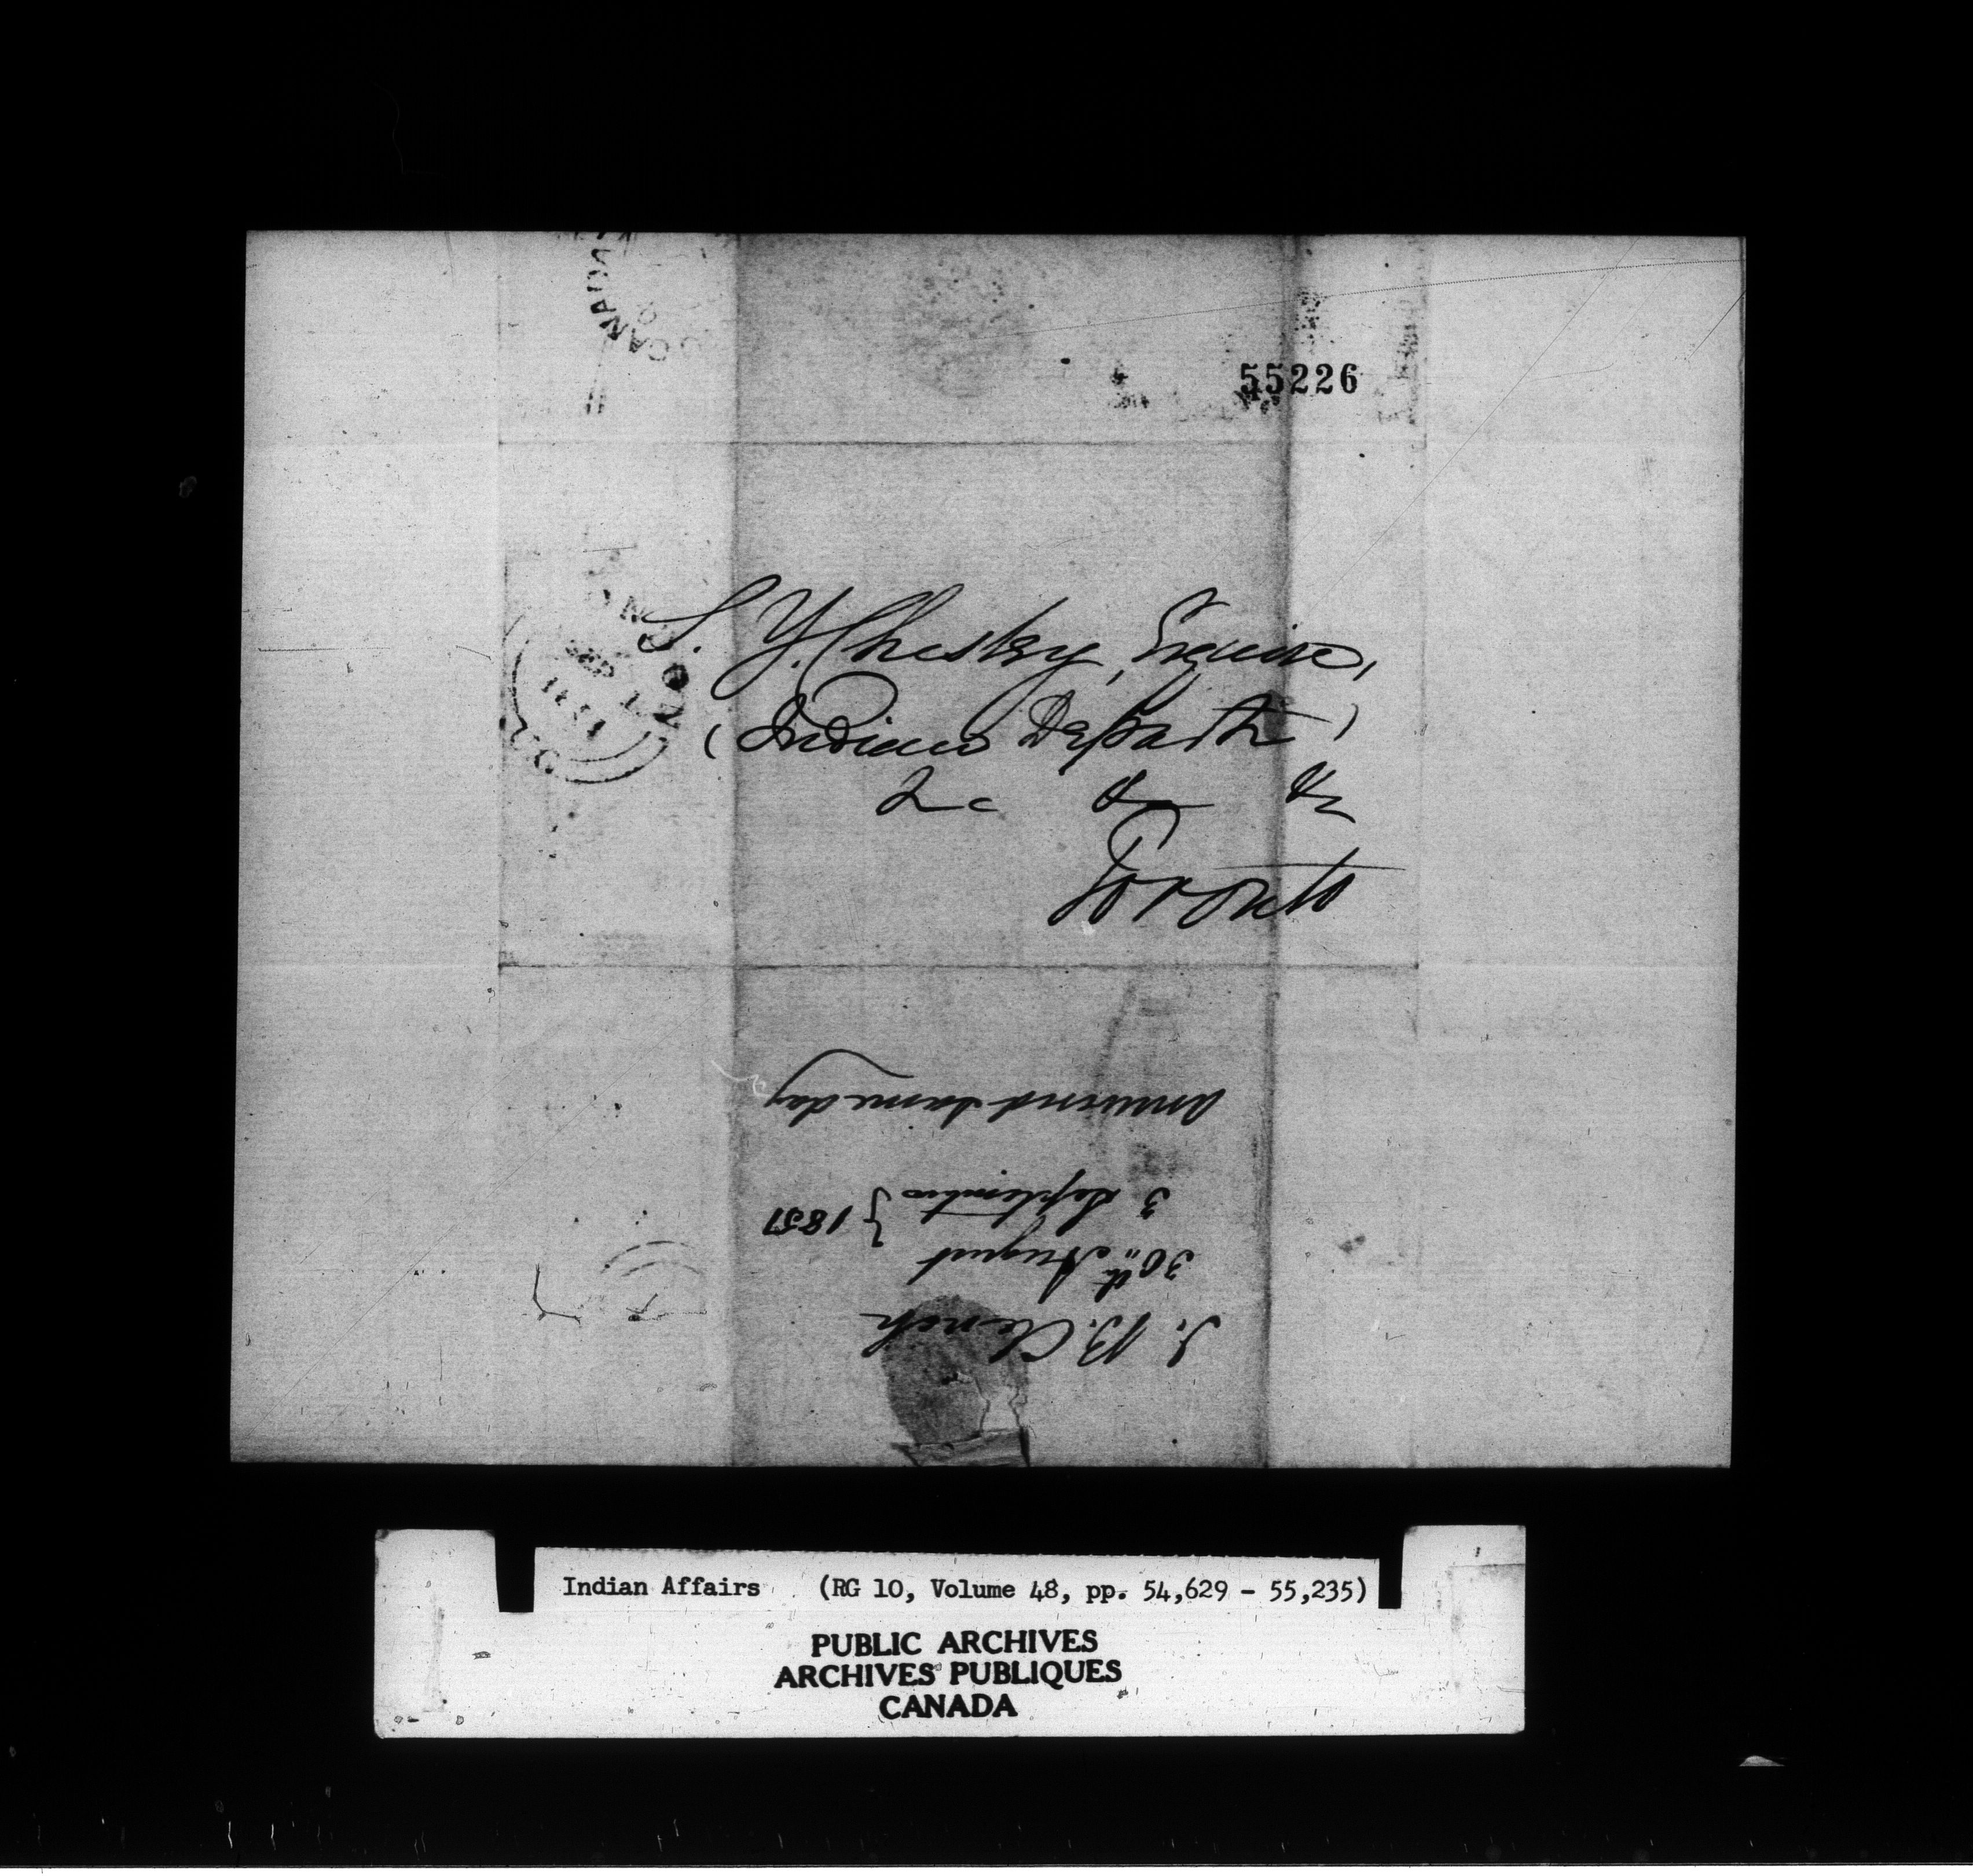 CANADA
55226
LONDON
SEP 1
1851
U.C.
S. Y. Chesley, Esquire,
(Indian Departt)
&c &c &c
Toronto
J. B. Clench
30th August } 1851
3 September
Answered same day
Indian Affairs (RG 10, Volume 48, pp. 54,629 - 55,235)
PUBLIC ARCHIVES
ARCHIVES PUBLIQUES
CANADA